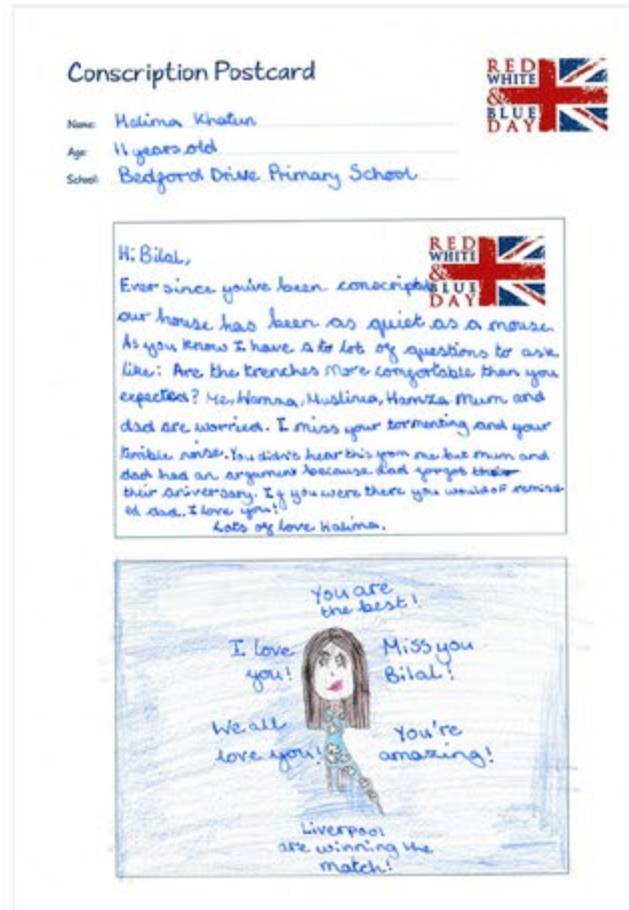 Conscription Postcard
RED
WHITE
&
BLUE
DAY
Name: Halima Khatun
Age: 11 years old
School: Bedford Drive Primary School
RED
WHITE
&
BLUE
DAY
Hi Bilal,
Ever since you've been conscripted
our house has been as quiet as a mouse.
As you know I have a to lot of questions to ask
like: Are the trenches more comfortable than you
expected? Me, Hamna, Muslima, Hamza Mum and
dad are worried. I miss your tormenting and your
terrible noise. You didn't hear this from me but mum and
dad had an argument because dad forgot their
their aniversary. If you were there you would of remind
ed dad. I love you!
Lots of love Halima.
You are
the best!
I love
you!
Miss you
Bilal!
We all
love you!
You're
amazing!
Liverpool
are winning the
match!